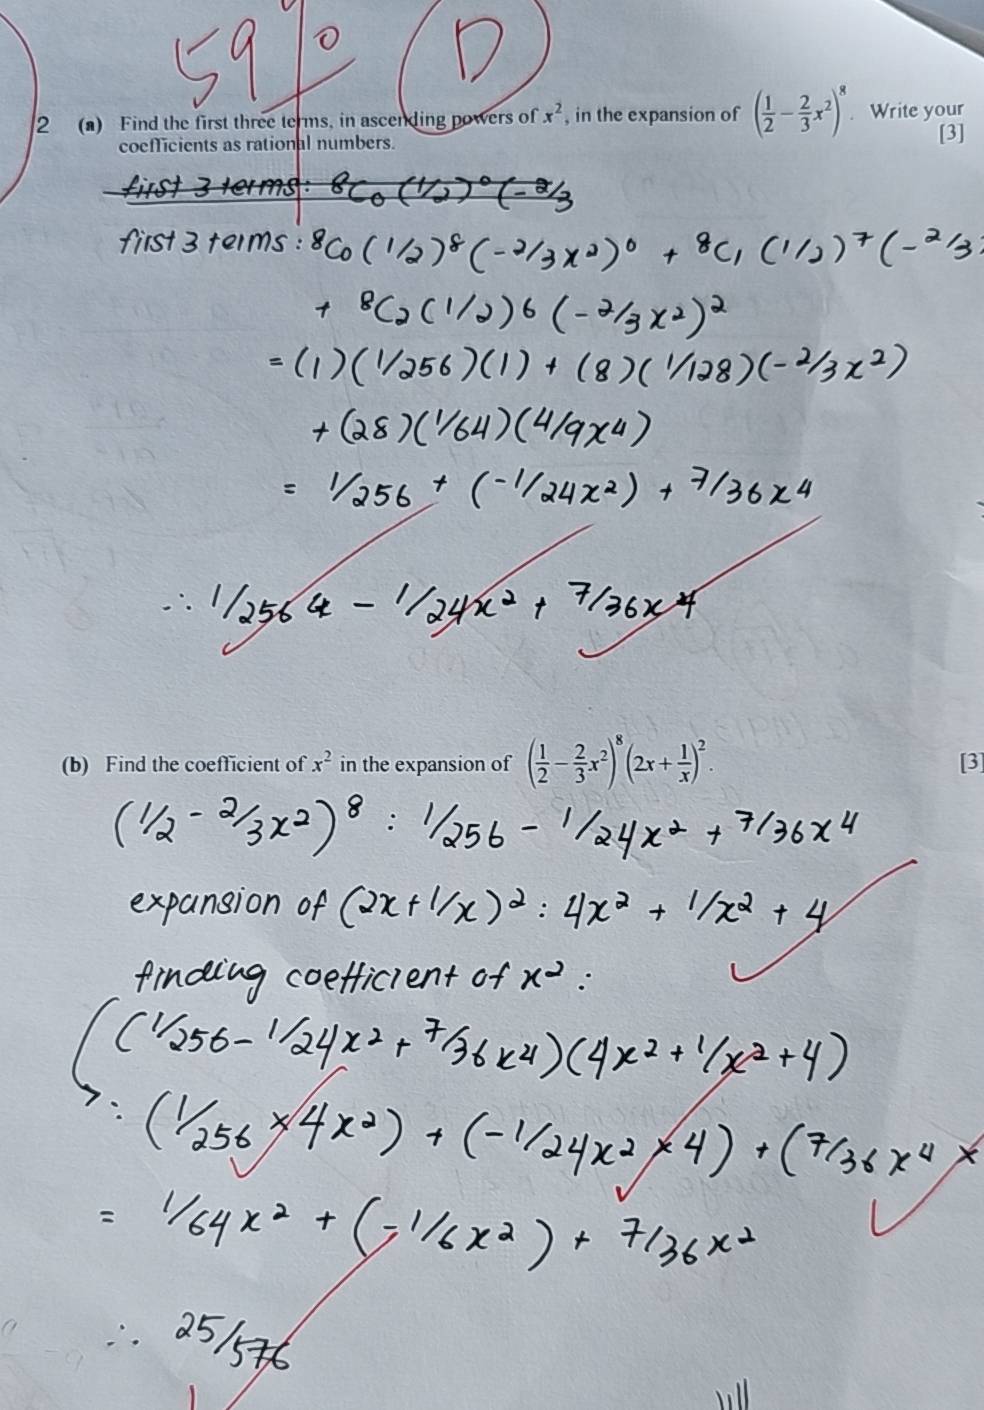 59% D
2 (a) Find the first three terms, in ascending powers of x², in the expansion of (1/2 − 2/3 x²)⁸. Write your
coefficients as rational numbers. [3]
first 3 terms: 8C0 (1/2)⁰ (-2/3
first 3 terms: 8C0 (1/2)⁸ (-2/3x²)⁰ + 8C1 (1/2)⁷ (-2/3
+ 8C2 (1/2)6 (-2/3x²)²
= (1)(1/256)(1) + (8)(1/128)(-2/3x²)
+ (28)(1/64)(4/9x4)
= 1/256 + (-1/24x²) + 7/36x4
∴ 1/256 - 1/24x² + 7/36x4
(b) Find the coefficient of x² in the expansion of (1/2 − 2/3 x²)⁸ (2x + 1/x)². [3]
(1/2 - 2/3x²)⁸ : 1/256 - 1/24x² + 7/36x4
expansion of (2x + 1/x)² : 4x² + 1/x² + 4
finding coefficient of x² :
(1/256 - 1/24x² + 7/36x4)(4x² + 1/x² + 4)
: (1/256 × 4x²) + (-1/24x² × 4) + (7/36x4 ×
= 1/64x² + (-1/6x²) + 7/36x²
∴ 25/576